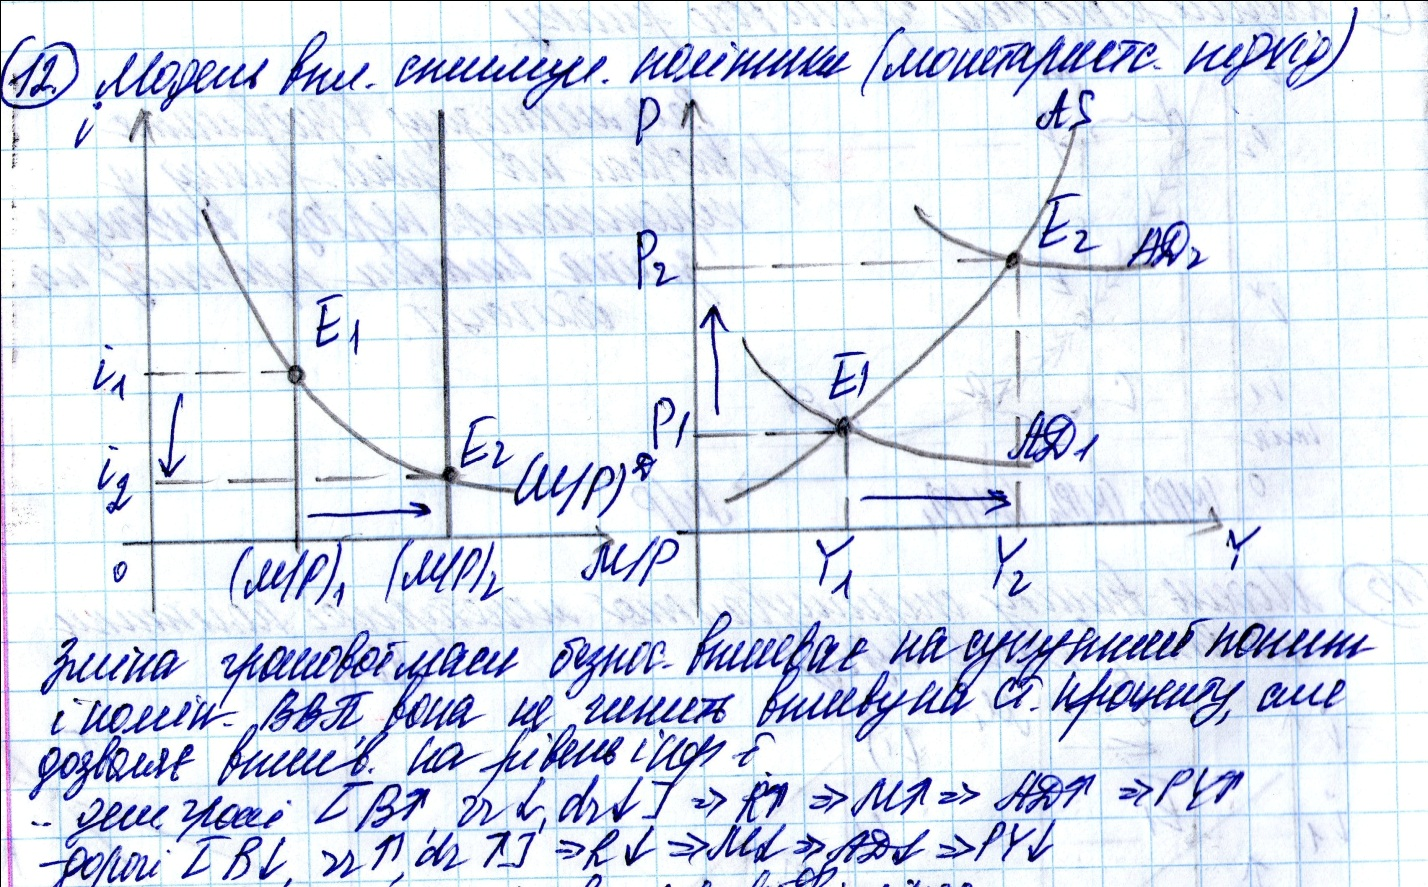 12. Модель впл. стимул. політики (монетаристс. підхід)
i P AS
E2 AD2
P2
E1
i1 E1
P1 AD1
i2 E2 (M/P)ᴰ
0 (M/P)1 (M/P)2 M/P Y1 Y2 Y
Зміна грошової маси безпос. впливає на сукупний попит
і номін. ВВП, вона не чинить впливу на ст. проценту, але
дозволяє вплив. на рівень інф-ї
- деш гроші [B↑, rr↓, dr↓] ⇒ R↑ ⇒ M↑ ⇒ AD↑ ⇒ PY↑
- дорогі [B↓, rr↑, dr↑] ⇒ R↓ ⇒ M↓ ⇒ AD↓ ⇒ PY↓